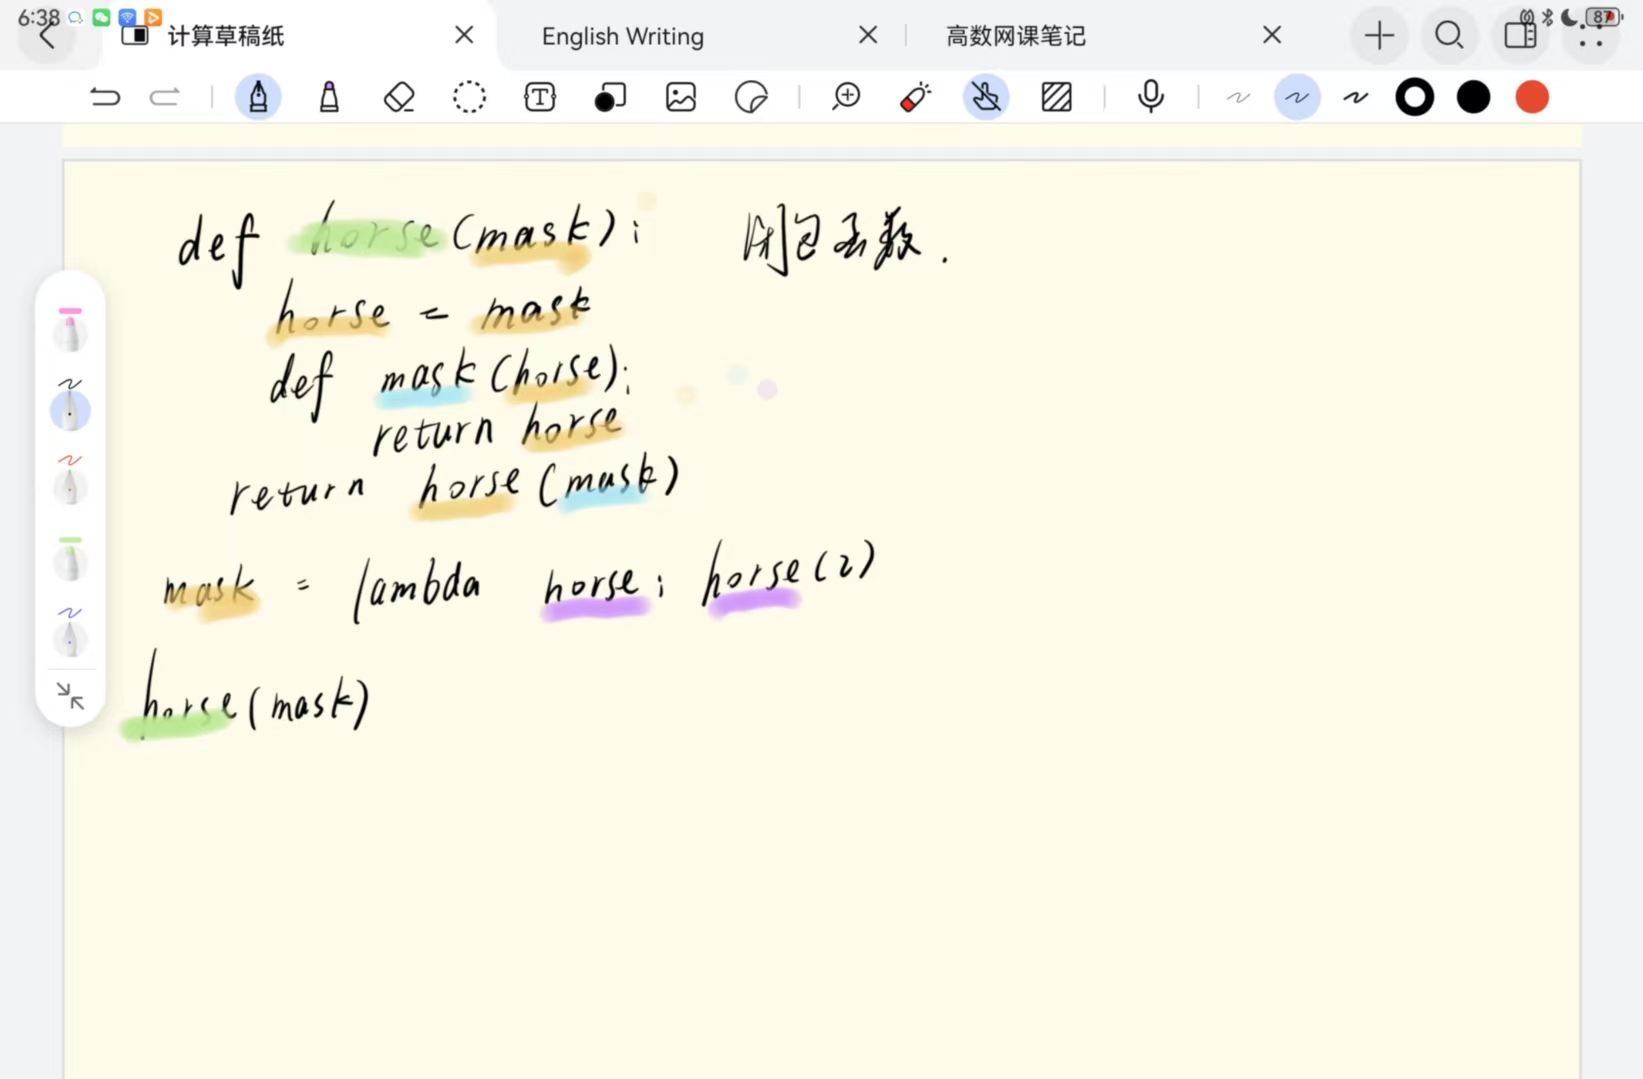 6:38
87
计算草稿纸
English Writing
高数网课笔记
def horse(mask): 闭包函数.
horse = mask
def mask(horse):
return horse
return horse(mask)
mask = lambda horse: horse(2)
horse(mask)